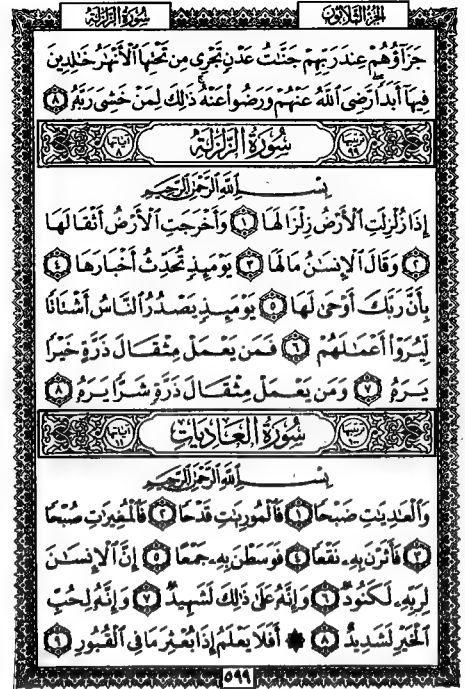 سُورَةُ الزَّلْزَلَةِ الجُزْءُ الثَّلَاثُونَ
جَزَآؤُهُمْ عِندَ رَبِّهِمْ جَنَّٰتُ عَدْنٍ تَجْرِى مِن تَحْتِهَا ٱلْأَنْهَٰرُ خَٰلِدِينَ
فِيهَآ أَبَدًا ۖ رَّضِىَ ٱللَّهُ عَنْهُمْ وَرَضُوا۟ عَنْهُ ۚ ذَٰلِكَ لِمَنْ خَشِىَ رَبَّهُۥ ٨
ترتيبها ٩٩ سُورَةُ الزَّلْزَلَةِ آياتها ٨
بِسْمِ ٱللَّهِ ٱلرَّحْمَٰنِ ٱلرَّحِيمِ
إِذَا زُلْزِلَتِ ٱلْأَرْضُ زِلْزَالَهَا ١ وَأَخْرَجَتِ ٱلْأَرْضُ أَثْقَالَهَا
٢ وَقَالَ ٱلْإِنسَٰنُ مَا لَهَا ٣ يَوْمَئِذٍ تُحَدِّثُ أَخْبَارَهَا ٤
بِأَنَّ رَبَّكَ أَوْحَىٰ لَهَا ٥ يَوْمَئِذٍ يَصْدُرُ ٱلنَّاسُ أَشْتَاتًا
لِّيُرَوْا۟ أَعْمَٰلَهُمْ ٦ فَمَن يَعْمَلْ مِثْقَالَ ذَرَّةٍ خَيْرًا
يَرَهُۥ ٧ وَمَن يَعْمَلْ مِثْقَالَ ذَرَّةٍ شَرًّا يَرَهُۥ ٨
ترتيبها سُورَةُ العَادِيَاتِ آياتها
بِسْمِ ٱللَّهِ ٱلرَّحْمَٰنِ ٱلرَّحِيمِ
وَٱلْعَٰدِيَٰتِ ضَبْحًا ١ فَٱلْمُورِيَٰتِ قَدْحًا ٢ فَٱلْمُغِيرَٰتِ صُبْحًا
٣ فَأَثَرْنَ بِهِۦ نَقْعًا ٤ فَوَسَطْنَ بِهِۦ جَمْعًا ٥ إِنَّ ٱلْإِنسَٰنَ
لِرَبِّهِۦ لَكَنُودٌ ٦ وَإِنَّهُۥ عَلَىٰ ذَٰلِكَ لَشَهِيدٌ ٧ وَإِنَّهُۥ لِحُبِّ
ٱلْخَيْرِ لَشَدِيدٌ ٨ ۞ أَفَلَا يَعْلَمُ إِذَا بُعْثِرَ مَا فِى ٱلْقُبُورِ ٩
٥٩٩